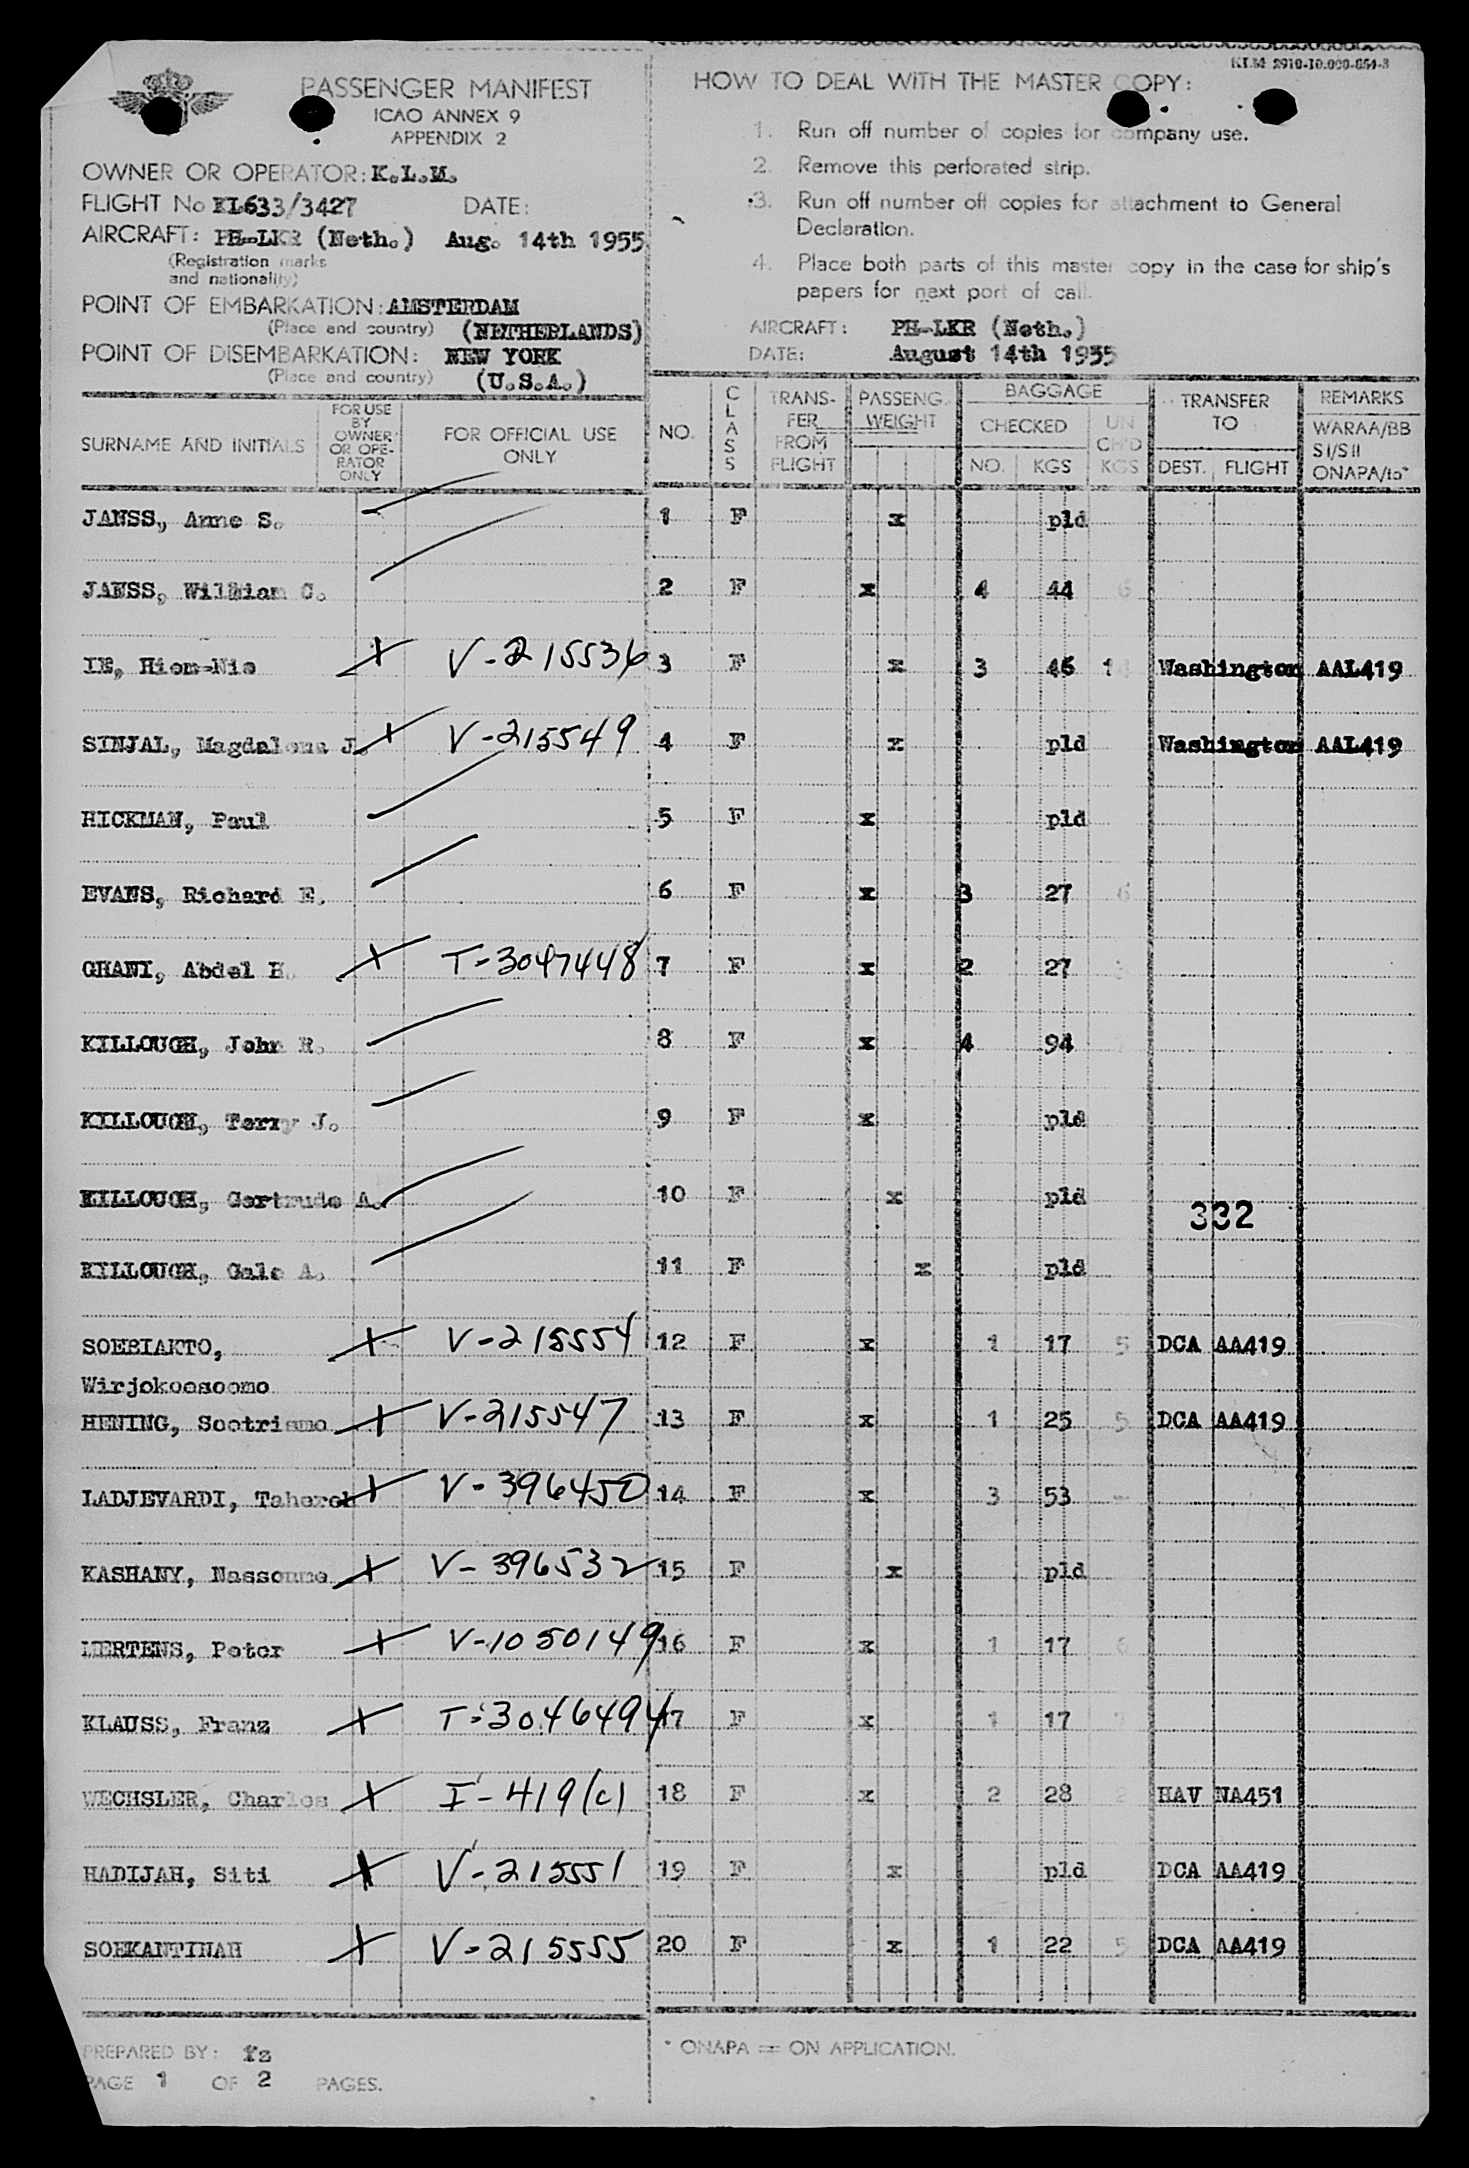 KLM 2910-10.000-654-8
PASSENGER MANIFEST
ICAO ANNEX 9
APPENDIX 2
OWNER OR OPERATOR: K.L.M.
FLIGHT No KL633/3427 DATE:
AIRCRAFT: PH-LKR (Neth.) Aug. 14th 1955
(Registration marks
and nationality)
POINT OF EMBARKATION: AMSTERDAM
(Place and country) (NETHERLANDS)
POINT OF DISEMBARKATION: NEW YORK
(Place and country) (U.S.A.)
HOW TO DEAL WITH THE MASTER COPY:
1. Run off number of copies for company use.
2. Remove this perforated strip.
3. Run off number off copies for attachment to General
Declaration.
4. Place both parts of this master copy in the case for ship's
papers for next port of call.
AIRCRAFT: PH-LKR (Neth.)
DATE: August 14th 1955
SURNAME AND INITIALS
FOR USE
BY
OWNER
OR OPE-
RATOR
ONLY
FOR OFFICIAL USE
ONLY
NO.
CLASS
TRANS-
FER
FROM
FLIGHT
PASSENG.
WEIGHT
BAGGAGE
CHECKED
NO. KGS
UN
CH'D
KGS
TRANSFER
TO
DEST. FLIGHT
REMARKS
WARAA/BB
SI/SII
ONAPA/to*
JANSS, Anne S. 1 F x pld
JANSS, William C. 2 F x 4 44 6
IE, Hiem-Nio V-215536 3 F x 3 46 Washington AAL419
SINJAL, Magdalena J. V-215549 4 F x pld Washington AAL419
HICKMAN, Paul 5 F x pld
EVANS, Richard E. 6 F x 3 27 6
GHANI, Abdel H. T-3047448 7 F x 2 27
KILLOUGH, John R. 8 F x 4 94
KILLOUGH, Terry J. 9 F x pld
KILLOUGH, Gertrude A. 10 F x pld
332
KILLOUGH, Gale A. 11 F x pld
SOEBIAKTO, V-215554 12 F x 1 17 5 DCA AA419
Wirjokoesoemo
HENING, Soetrisno V-215547 13 F x 1 25 5 DCA AA419
LADJEVARDI, Tahereh V-396450 14 F x 3 53 -
KASHANY, Nassoume V-396532 15 F x pld
MERTENS, Peter V-1050149 16 F x 1 17 6
KLAUSS, Franz T-3046494 17 F x 1 17
WECHSLER, Charles I-419(c) 18 F x 2 28 2 HAV NA451
HADIJAH, Siti V-215551 19 F x pld DCA AA419
SOEKANTINAH V-215555 20 F x 1 22 5 DCA AA419
PREPARED BY: Yz
PAGE 1 OF 2 PAGES.
* ONAPA = ON APPLICATION.